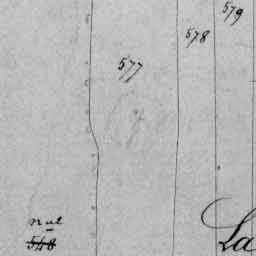 579
578
577
nul
546
La